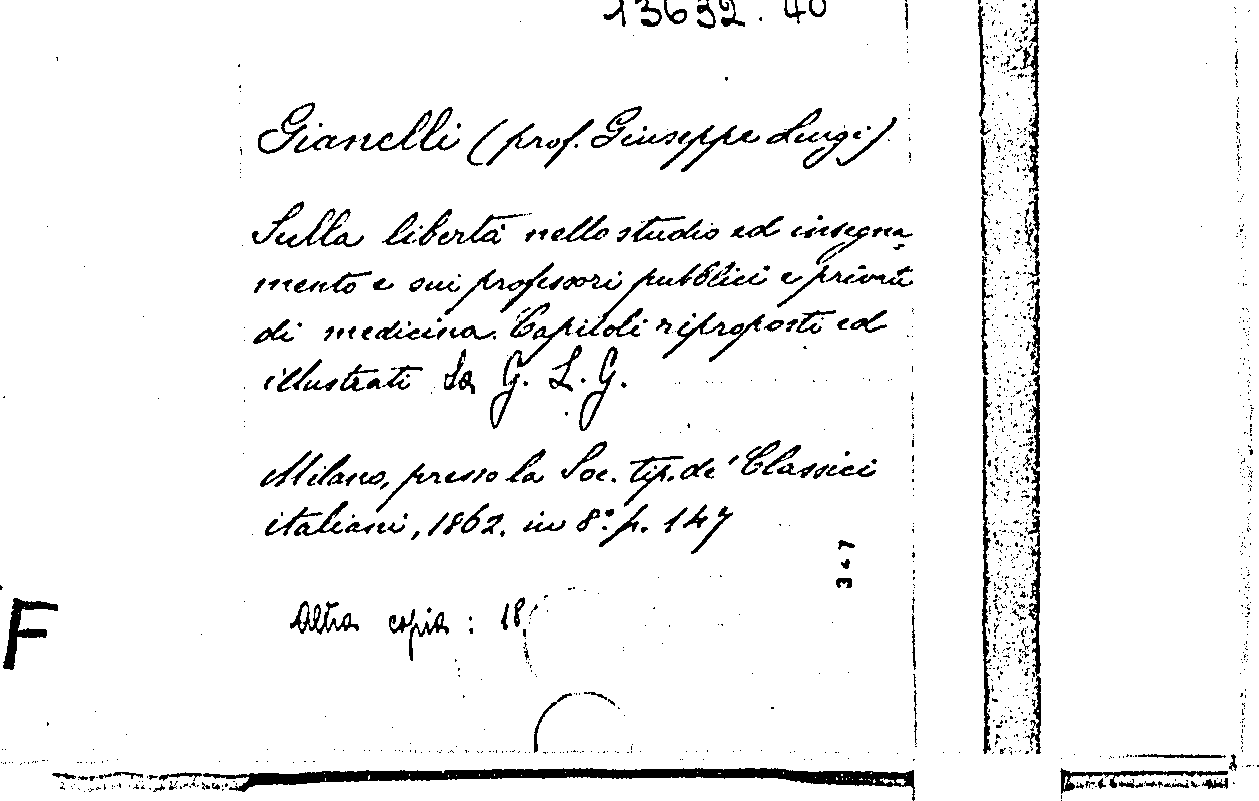 13632. 40
Gianelli (prof. Giuseppe Luigi)
Sulla libertà nello studio ed insegna-
mento e sui professori pubblici e privati
di medicina. Capitoli riproposti ed
illustrati da G. L. G.
Milano, presso la Soc. tip. de' Classici
italiani, 1862. in 8.° p. 147
347
Altra copia: 18
F